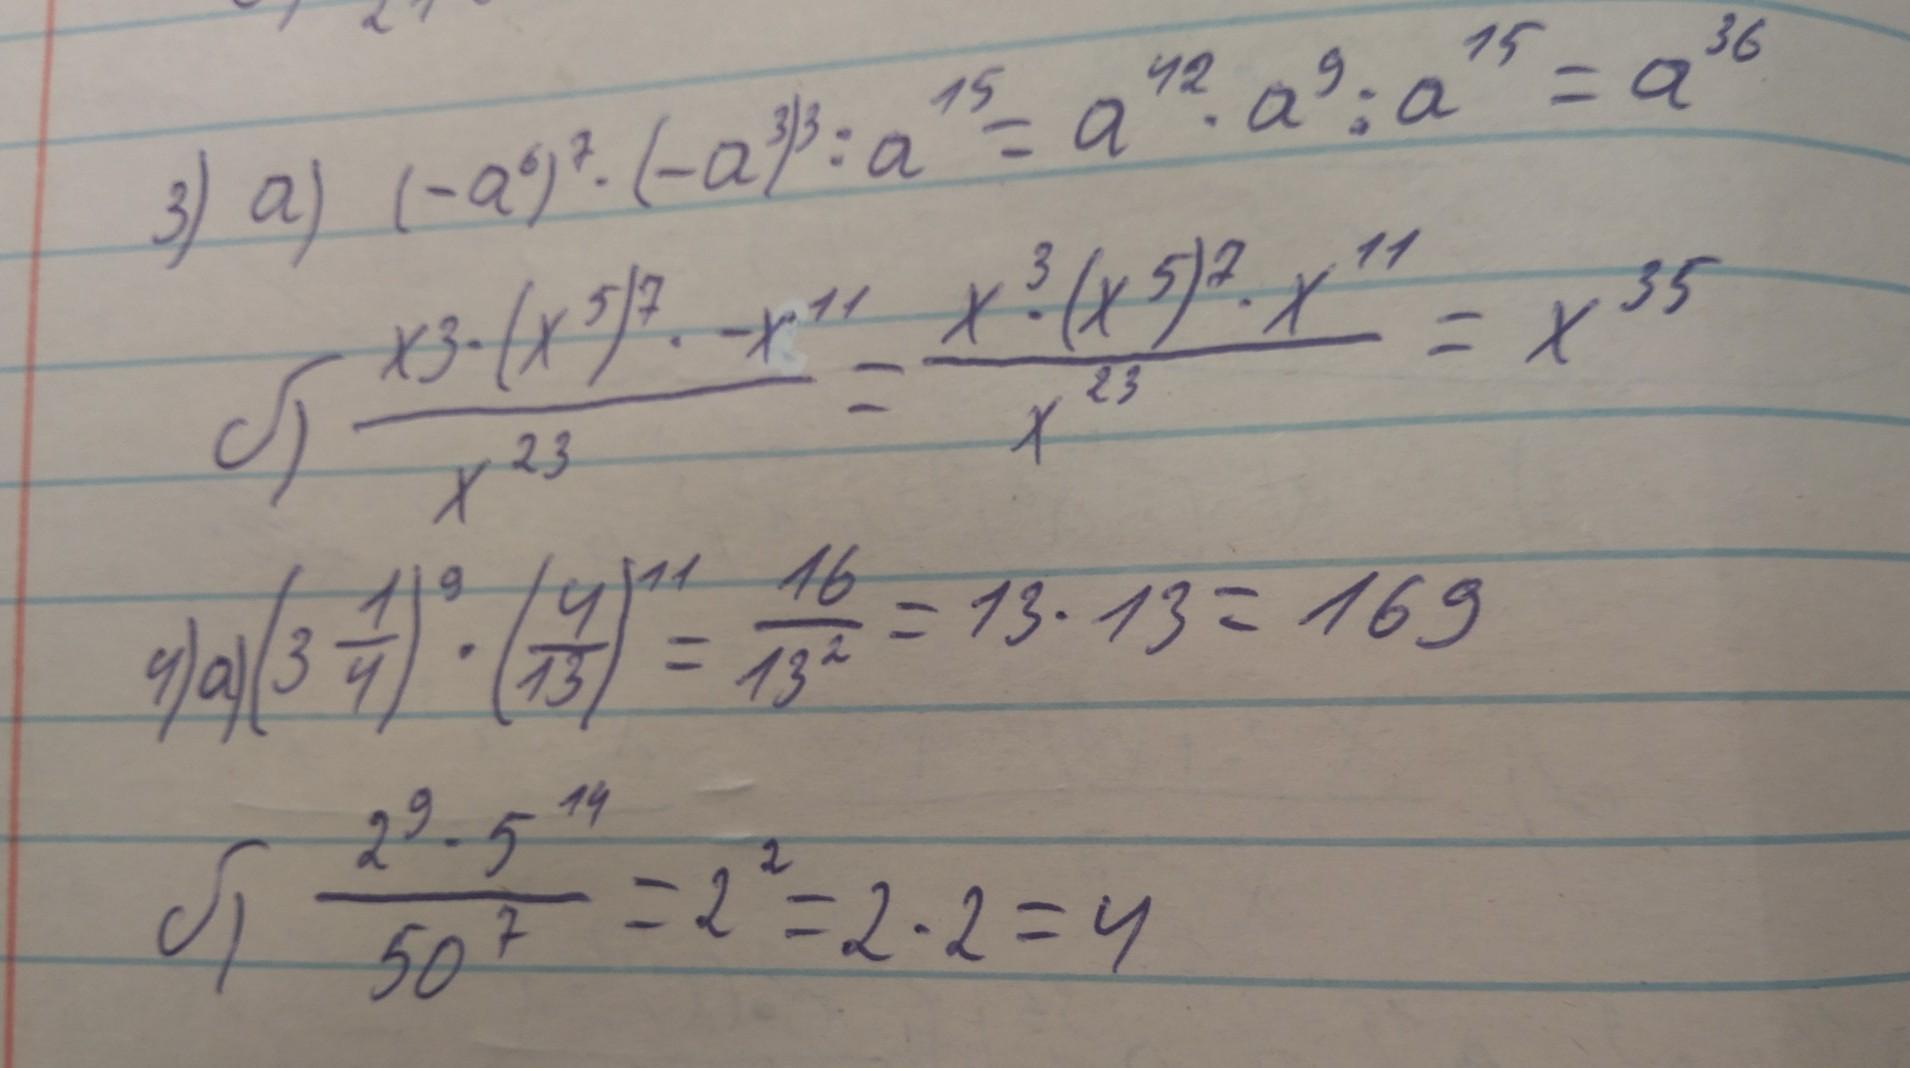 3) a) (-a⁶)⁷ · (-a³)³ : a¹⁵ = a⁴² · a⁹ : a¹⁵ = a³⁶
б) x3·(x⁵)⁷ · -x¹¹ / x²³ = x³·(x⁵)⁷·x¹¹ / x²³ = x³⁵
4) a) (3 1/4)⁹ · (4/13)¹¹ = 16/13² = 13·13 = 169
б) 2⁹ · 5¹⁴ / 50⁷ = 2² = 2·2 = 4